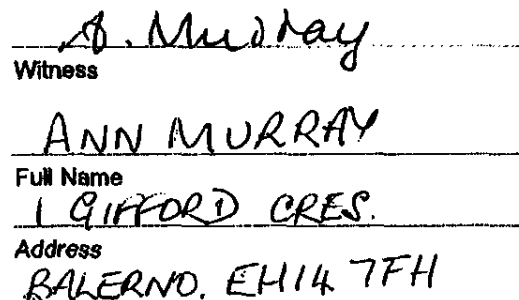 A. Murray
Witness
ANN MURRAY
Full Name
1 GIFFORD CRES.
Address
BALERNO. EH14 7FH